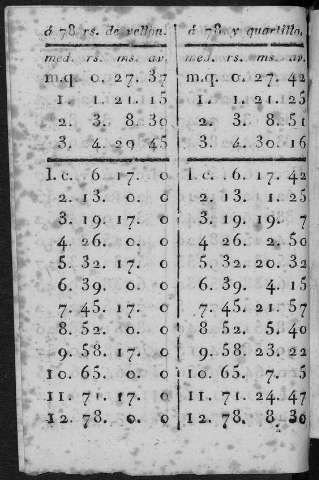 á 78 rs. de vellon. á 78 y quartillo.
med. rs. ms. av. med. rs. ms. av.
m.q 0. 27. 37 m.q. 0. 27. 42
1. 1. 21. 15 1. 1. 21. 25
2. 3. 8. 30 2. 3. 8. 51
3. 4. 29 45 3. 4. 30. 16
1. c. 6 17. 0 1. c. 6. 17. 42
2. 13. 0. 0 2. 13. 1. 25
3. 19. 17. 0 3. 19. 19. 7
4 26. 0. 0 4 26. 2. 50
5. 32. 17. 0 5. 32. 20. 32
6. 39. 0. 0 6. 39. 4. 15
7. 45. 17. 0 7. 45. 21. 57
8. 52. 0. 0 8. 52. 5. 40
9. 58. 17. 0 9. 58. 23. 22
10. 65. 0. 0 10. 65. 7. 5
11. 71. 17. 0 11. 71. 24. 47
12. 78. 0. 0 12. 78. 8. 30